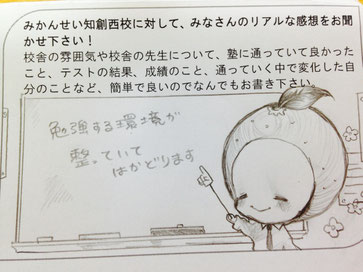 みかんせい知創西校に対して、みなさんのリアルな感想をお聞
かせ下さい！
校舎の雰囲気や校舎の先生について、塾に通っていて良かった
こと、テストの結果、成績のこと、通っていく中で変化した自
分のことなど、簡単で良いのでなんでもお書き下さい。
勉強する環境が
整っていて
はかどります